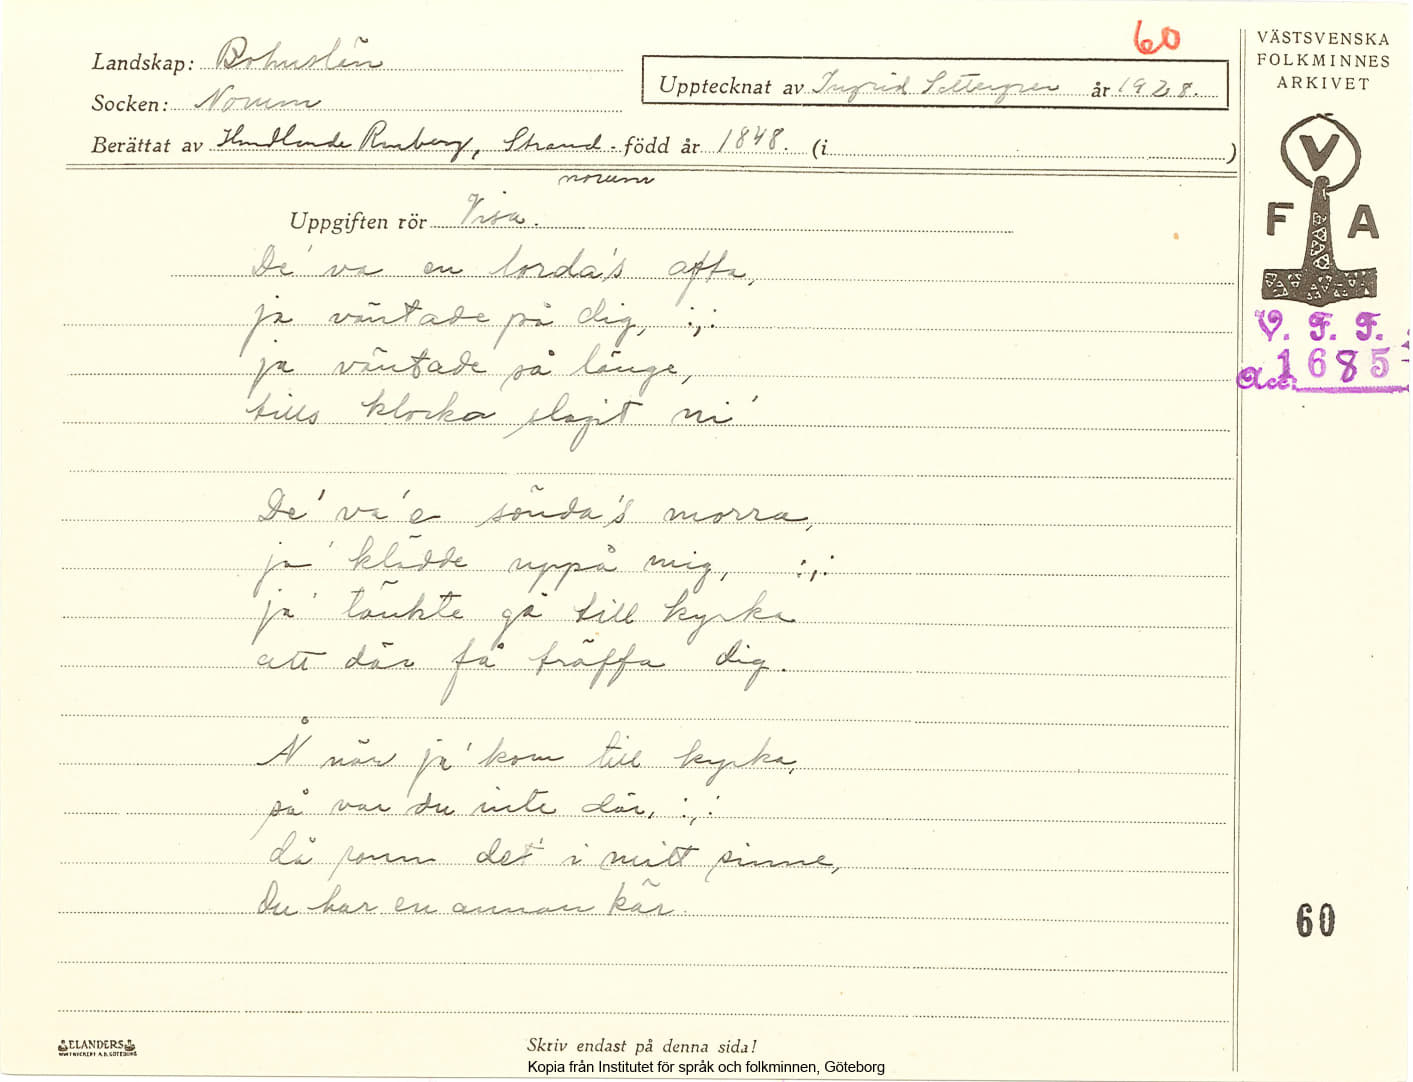 60
Landskap: Bohuslän
Socken: Norum
Upptecknat av Ingrid Settergren år 1928.
Berättat av Rörberg, Strand - född år 1848. (i )
norum
Uppgiften rör Visa.
De' va en lorda's afta,
ja väntade på dig, :,:
ja väntade så länge,
tills klocka slagit ni'
De' va' e sönda's morra,
ja' klädde uppå mig, :,:
ja' tänkte gå till kyrka
att där få träffa dig.
Å när ja' kom till kyrka,
så var du inte där, :,:
då rann det i mitt sinne,
Du har en annan kär.
Skriv endast på denna sida!
ELANDERS
VÄSTSVENSKA
FOLKMINNES
ARKIVET
V
F A
V. F. F.
Acc. 1685
60
Kopia från Institutet för språk och folkminnen, Göteborg